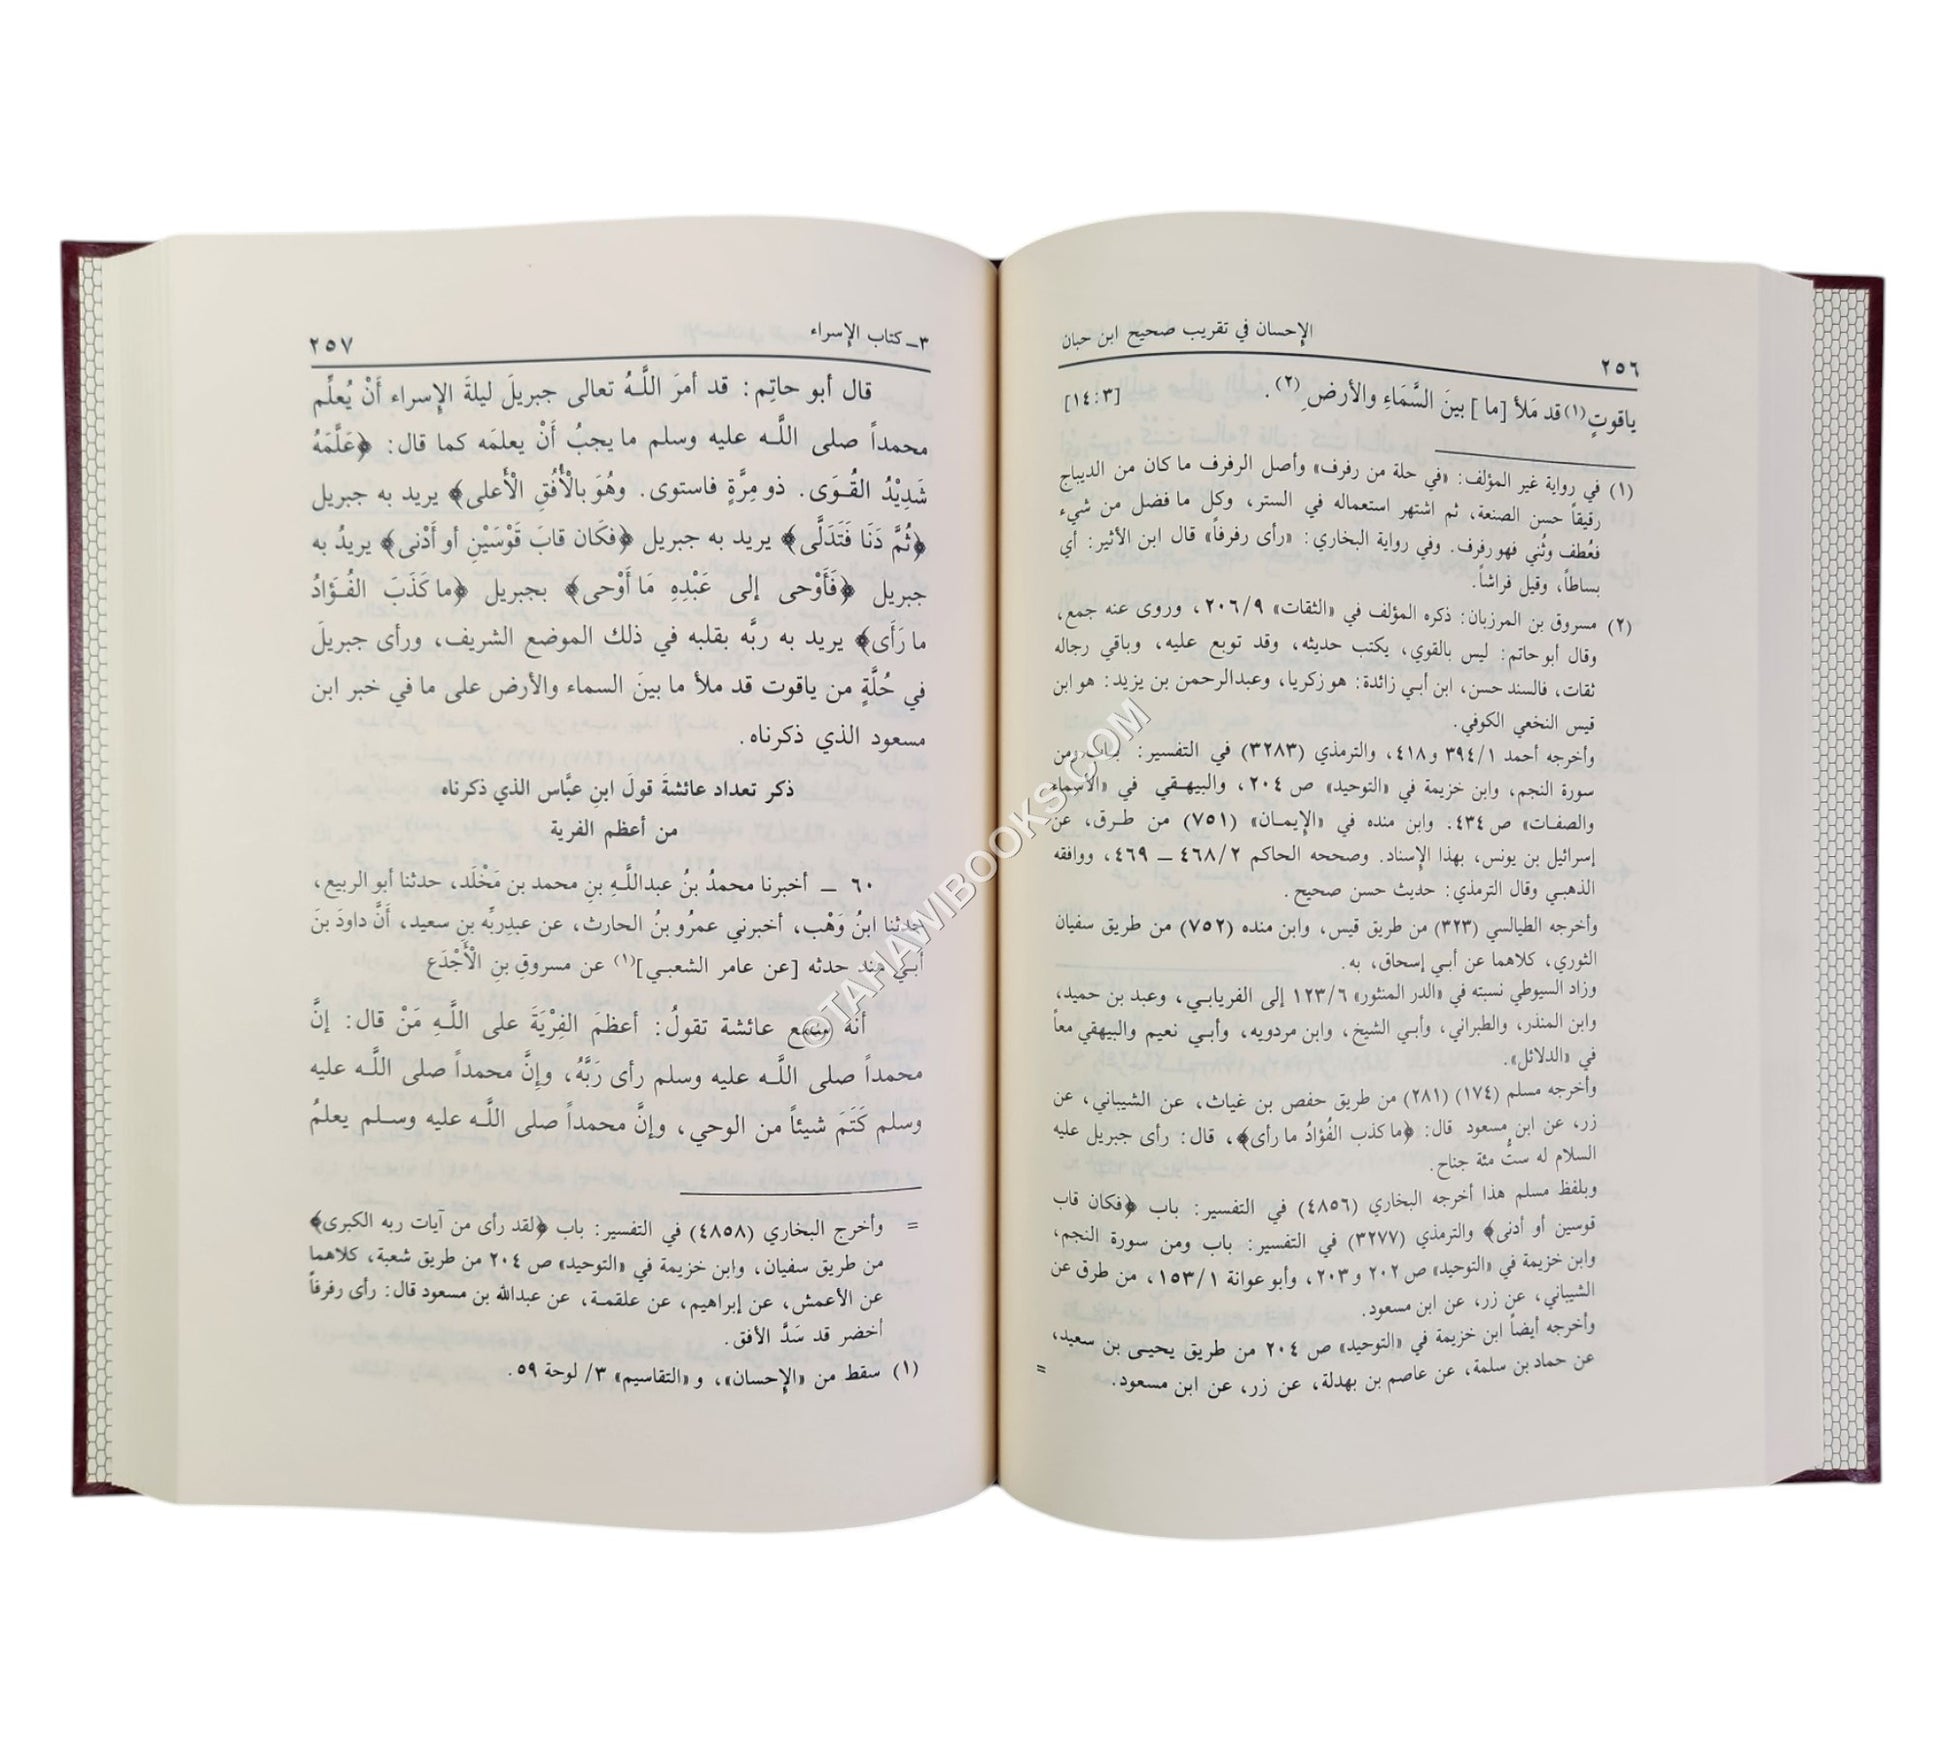 الإحسان في تقريب صحيح ابن حبان
٢٥٦
ياقوتٍ(١) قد مَلأ [ما] بينَ السَّمَاءِ والأرضِ(٢). [١٤:٣]
(١) في رواية غير المؤلف: «في حلة من رفرف» وأصل الرفرف ما كان من الديباج
رقيقاً حسن الصنعة، ثم اشتهر استعماله في الستر، وكل ما فضل من شيء
فعُطف وثُني فهو رفرف. وفي رواية البخاري: «رأى رفرفاً» قال ابن الأثير: أي
بساطاً، وقيل فراشاً.
(٢) مسروق بن المرزبان: ذكره المؤلف في «الثقات» ٢٠٦/٩، وروى عنه جمع،
وقال أبو حاتم: ليس بالقوي، يكتب حديثه، وقد توبع عليه، وباقي رجاله
ثقات، فالسند حسن، ابن أبي زائدة: هو زكريا، وعبدالرحمن بن يزيد: هو ابن
قيس النخعي الكوفي.
وأخرجه أحمد ٣٩٤/١ و٤١٨، والترمذي (٣٢٨٣) في التفسير: باب ومن
سورة النجم، وابن خزيمة في «التوحيد» ص ٢٠٤، والبيهقي في «الأسماء
والصفات» ص ٤٣٤. وابن منده في «الإيمان» (٧٥١) من طرق، عن
إسرائيل بن يونس، بهذا الإسناد. وصححه الحاكم ٤٦٨/٢ ــ ٤٦٩، ووافقه
الذهبي وقال الترمذي: حديث حسن صحيح.
وأخرجه الطيالسي (٣٢٣) من طريق قيس، وابن منده (٧٥٢) من طريق سفيان
الثوري، كلاهما عن أبي إسحاق، به.
وزاد السيوطي نسبته في «الدر المنثور» ١٢٣/٦ إلى الفريابي، وعبد بن حميد،
وابن المنذر، والطبراني، وأبي الشيخ، وابن مردويه، وأبي نعيم والبيهقي معاً
في «الدلائل».
وأخرجه مسلم (١٧٤) (٢٨١) من طريق حفص بن غياث، عن الشيباني، عن
زر، عن ابن مسعود قال: ﴿ما كذب الفُؤادُ ما رأى﴾، قال: رأى جبريل عليه
السلام له ستُّ مئة جناح.
وبلفظ مسلم هذا أخرجه البخاري (٤٨٥٦) في التفسير: باب ﴿فكان قاب
قوسين أو أدنى﴾ والترمذي (٣٢٧٧) في التفسير: باب ومن سورة النجم،
وابن خزيمة في «التوحيد» ص ٢٠٢ و٢٠٣، وأبو عوانة ١٥٣/١، من طرق عن
الشيباني، عن زر، عن ابن مسعود.
وأخرجه أيضاً ابن خزيمة في «التوحيد» ص ٢٠٤ من طريق يحيى بن سعيد،
عن حماد بن سلمة، عن عاصم بن بهدلة، عن زر، عن ابن مسعود. =
٣ــ كتاب الإسراء
٢٥٧
قال أبو حاتِم: قد أمرَ اللَّهُ تعالى جبريلَ ليلةَ الإسراء أَنْ يُعلِّم
محمداً صلى اللَّه عليه وسلم ما يجبُ أَنْ يعلمَه كما قال: ﴿عَلَّمَهُ
شَدِيْدُ القُوَى. ذو مِرَّةٍ فاستوى. وهُوَ بالْأُفُقِ الْأَعلى﴾ يريد به جبريل
﴿ثُمَّ دَنَا فَتَدَلَّى﴾ يريد به جبريل ﴿فكَان قابَ قَوْسَيْنِ أو أَدْنى﴾ يريدُ به
جبريل ﴿فَأَوْحى إلى عَبْدِهِ مَا أَوْحى﴾ بجبريل ﴿ما كَذَبَ الفُؤَادُ
ما رَأَى﴾ يريد به ربَّه بقلبه في ذلك الموضع الشريف، ورأى جبريلَ
في حُلَّةٍ من ياقوت قد ملأ ما بينَ السماء والأرض على ما في خبر ابن
مسعود الذي ذكرناه.
ذكر تعداد عائشةَ قولَ ابنِ عبَّاس الذي ذكرناه
من أعظم الفرية
٦٠ ــ أخبرنا محمدُ بنُ عبداللَّهِ بنِ محمد بن مَخْلَد، حدثنا أبو الربيع،
حدثنا ابنُ وَهْب، أخبرني عمرُو بنُ الحارث، عن عبدِربِّه بنِ سعيد، أَنَّ داودَ بنَ
أبي هند حدثه [عن عامر الشعبي](١) عن مسروقِ بنِ الْأَجْدَع
أنه سمع عائشة تقولُ: أعظمَ الفِرْيَةَ على اللَّهِ مَنْ قال: إنَّ
محمداً صلى اللَّه عليه وسلم رأى رَبَّهُ، وإِنَّ محمداً صلى اللَّه عليه
وسلم كَتَمَ شيئاً من الوحي، وإنَّ محمداً صلى اللَّه عليه وسلم يعلمُ
= وأخرج البخاري (٤٨٥٨) في التفسير: باب ﴿لقد رأى من آيات ربه الكبرى﴾
من طريق سفيان، وابن خزيمة في «التوحيد» ص ٢٠٤ من طريق شعبة، كلاهما
عن الأعمش، عن إبراهيم، عن علقمة، عن عبدالله بن مسعود قال: رأى رفرفاً
أخضر قد سَدَّ الأفق.
(١) سقط من «الإحسان»، و«التقاسيم» ٣/ لوحة ٥٩.
©TAHAWIBOOKS.COM